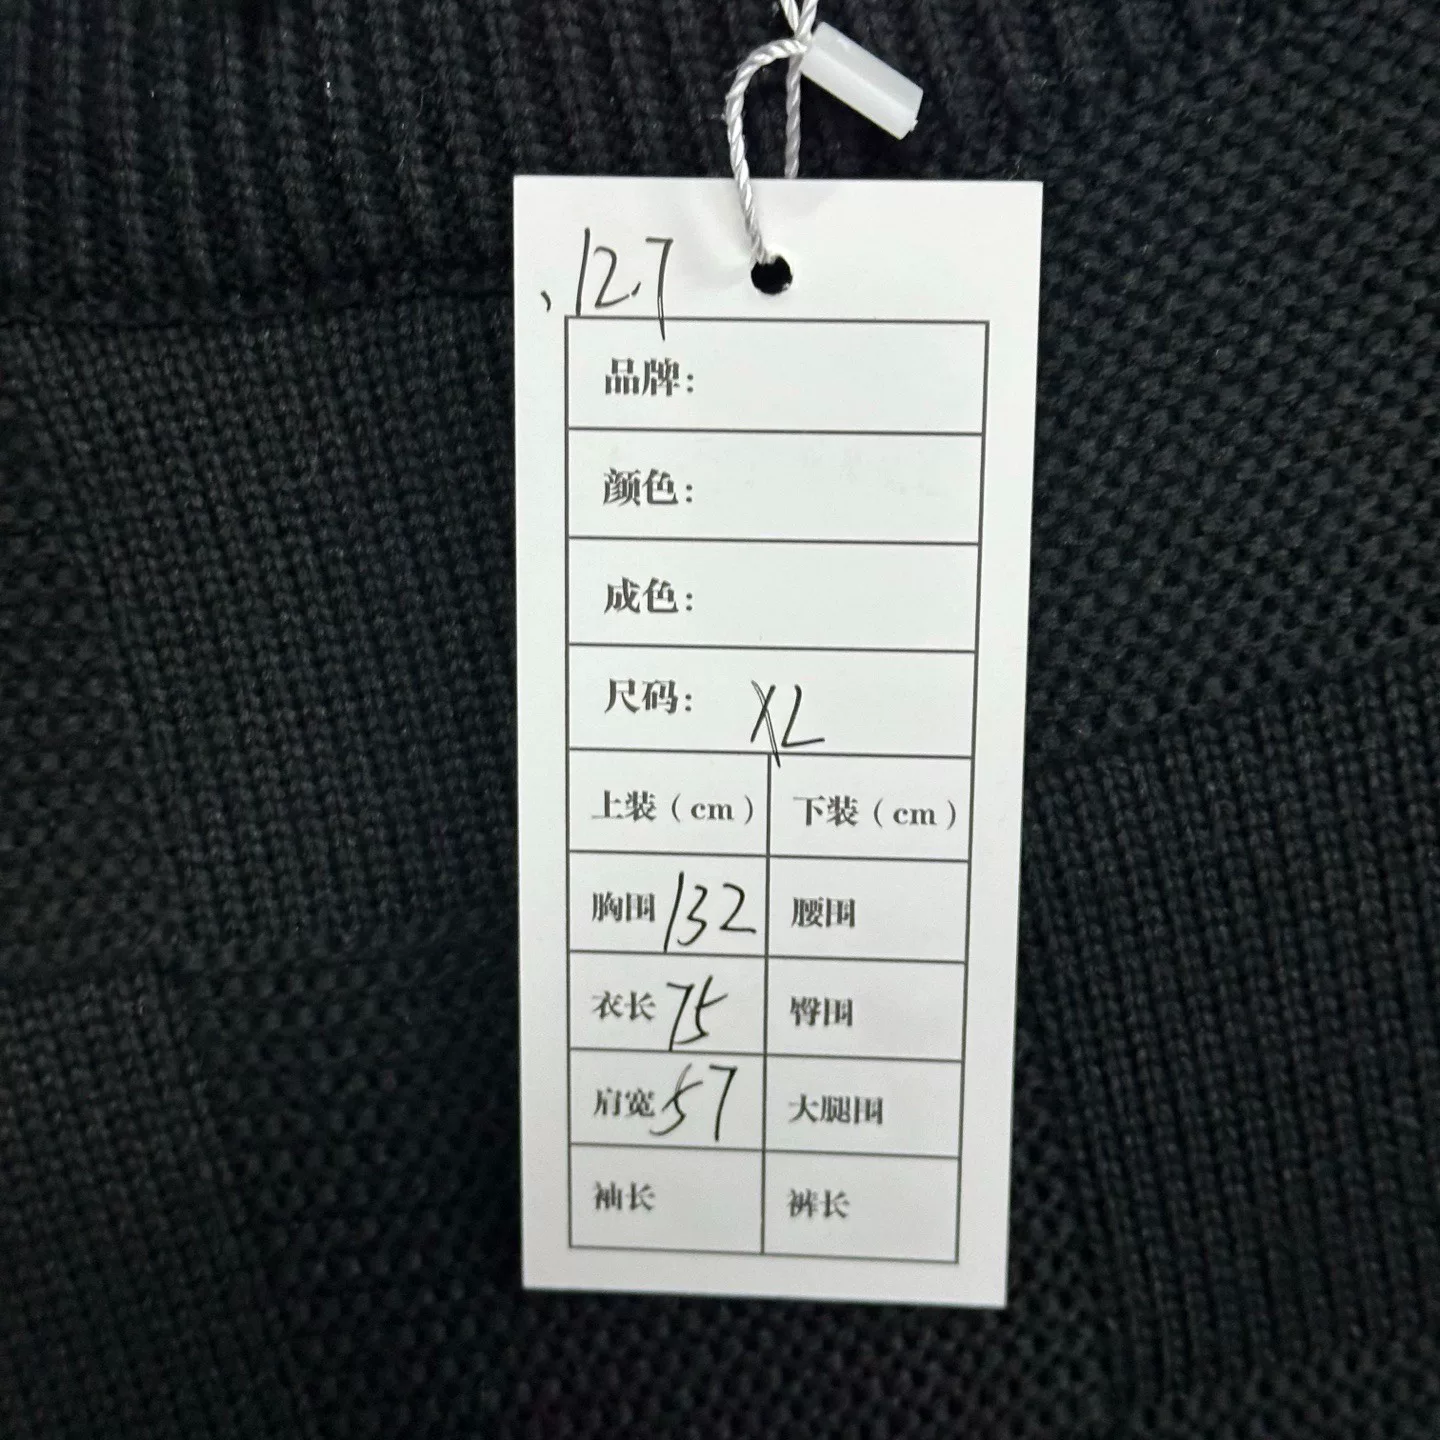 12.7
品牌：
颜色：
成色：
尺码： XL
上装（cm） 下装（cm）
胸围 132 腰围
衣长 75 臀围
肩宽 57 大腿围
袖长 裤长